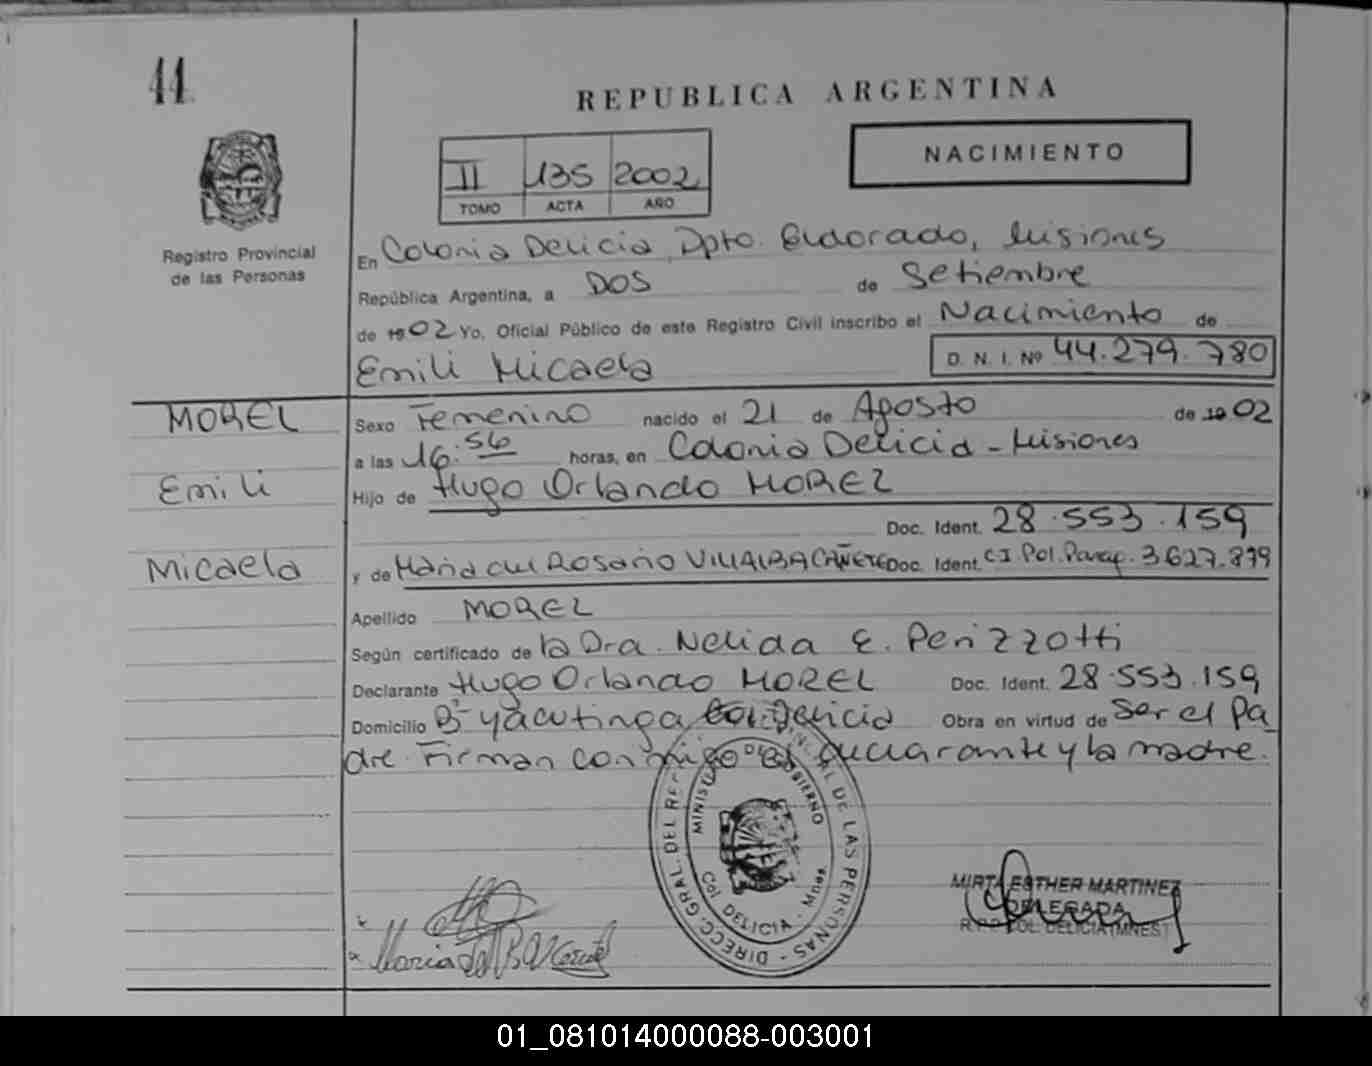 44
REPUBLICA ARGENTINA
NACIMIENTO
II 135 2002
TOMO ACTA AÑO
Registro Provincial
de las Personas
En Colonia Delicia, Dpto. Eldorado, Misiones
República Argentina, a DOS de Setiembre
de 1902 Yo, Oficial Público de este Registro Civil inscribo el Nacimiento de
Emili Micaela D. N. I. Nº 44.279.780
MOREL
Emili
Micaela
Sexo Femenino nacido el 21 de Agosto de 1902
a las 16:56 horas, en Colonia Delicia - Misiones
Hijo de Hugo Orlando MOREL
Doc. Ident. 28.553.159
y de Maria del Rosario VILLALBA CAÑETE Doc. Ident. C.I. Pol. Parag. 3.627.879
Apellido MOREL
Según certificado de la Dra. Nelida E. Perizzotti
Declarante Hugo Orlando MOREL Doc. Ident. 28.553.159
Domicilio Bº Yacutinga Col. Delicia Obra en virtud de Ser el Pa
dre. Firman conmigo el declarante y la madre.
DIRECC. GRAL. DEL REG. PROVINCIAL DE LAS PERSONAS
MINIST. DE GOBIERNO
Col. DELICIA - Mnes.
MIRTA ESTHER MARTINEZ
DELEGADA
R.P.P. COL. DELICIA (MNES)
01_081014000088-003001